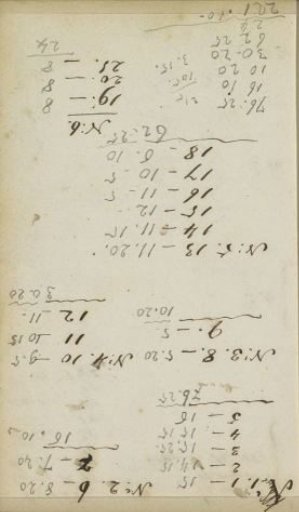 No. 1. 1 — 15
2 — 14.15
3 — 15.25
4 — 15.15
5 — 16
76.25
No 2. 6 — 8.20
7 — 7.20
16.10
No 3. 8 — 5.20
9. — 5.
10.20
No 4. 10 — 9.5
11 10 15
12 — 11.
30.20
No 5. 13 — 11.20.
14 — 11.15
15 — 12
16 — 11 - 5
17 — 10 - 5
18 — 6. 10
62.25
No 6.
19 — 8
20 — 8
21. — 8
24
76.25
16 10
10 20
30.20
62.25
24
221.10